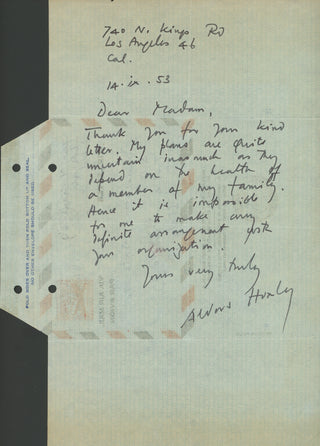 740 N. Kings Rd
Los Angeles 46
Cal.
14. ix. 53
Dear Madam,
Thank you for your kind
letter. My plans are quite
uncertain inasmuch as they
depend on the health of
a member of my family.
Hence it is impossible
for me to make any
definite arrangement with
your organization.
Yours very truly
Aldous Huxley
FOLD SIDES OVER AND THEN FOLD BOTTOM UP AND SEAL
NO OTHER ENVELOPE SHOULD BE USED